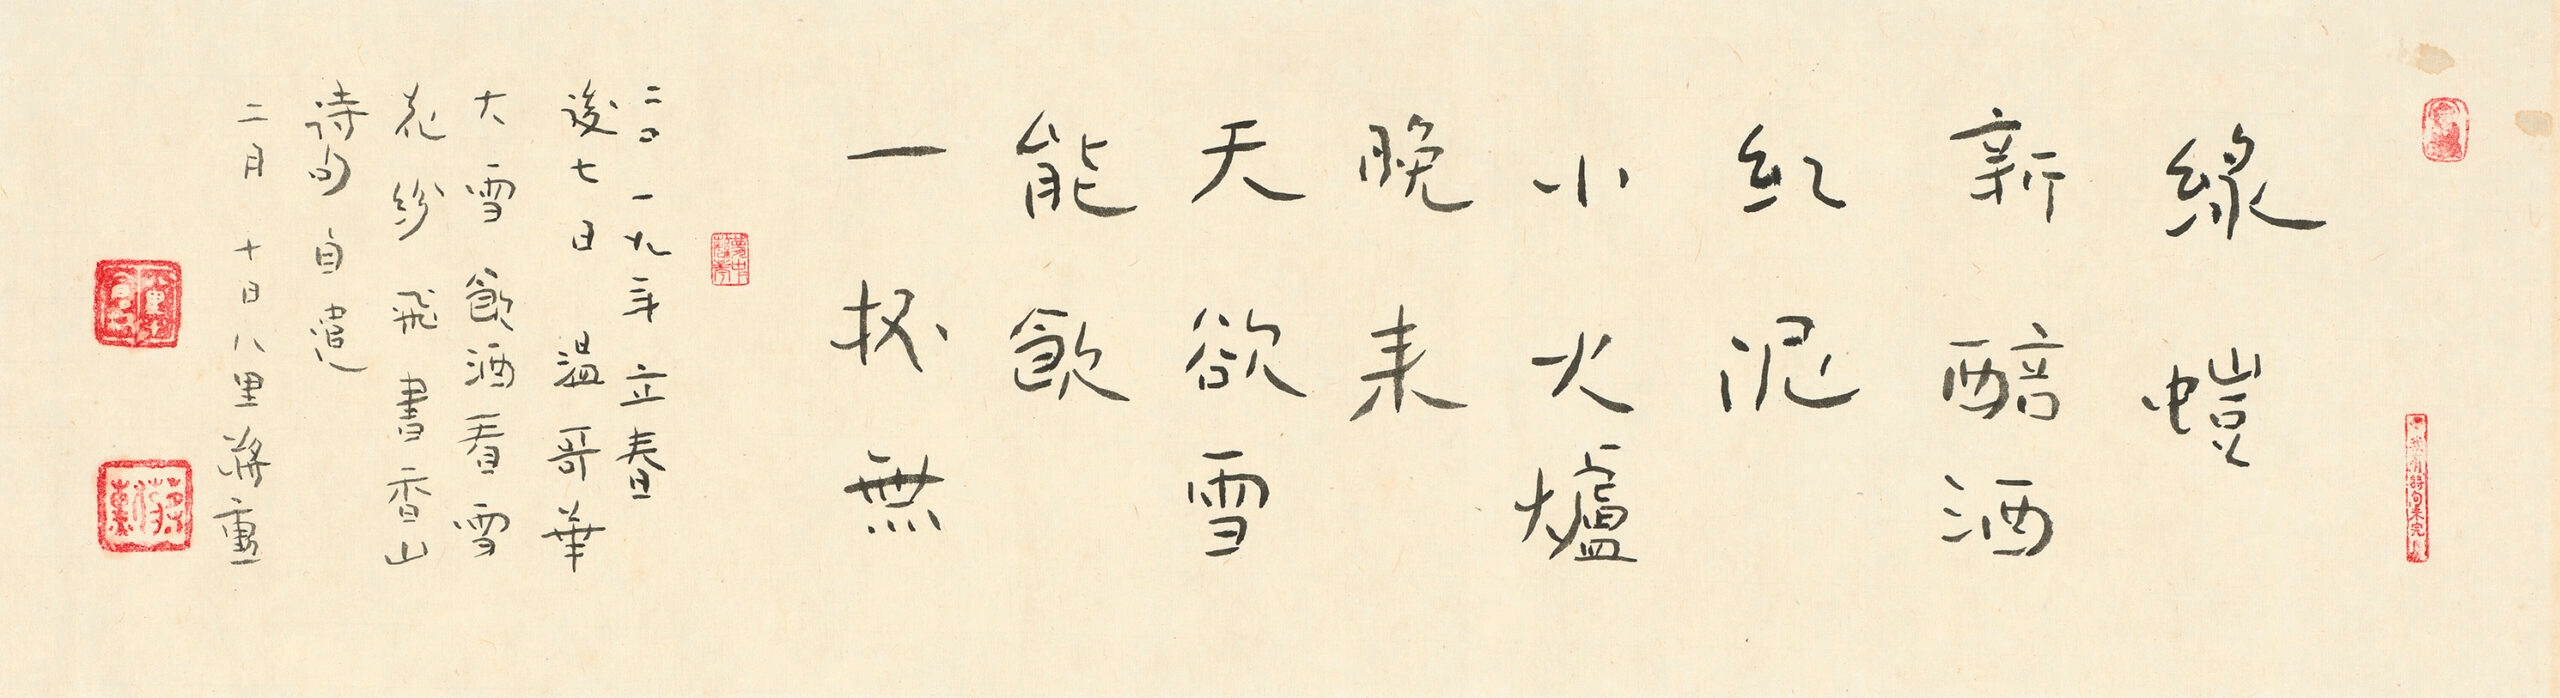 綠螘
新醅酒
紅泥
小火爐
晚來
天欲雪
能飲
一杯無
二〇一九年立春
後七日 溫哥華
大雪 飲酒看雪
花紛飛 書香山
詩句自遣
二月 十日八里蔣勳
蔣勳